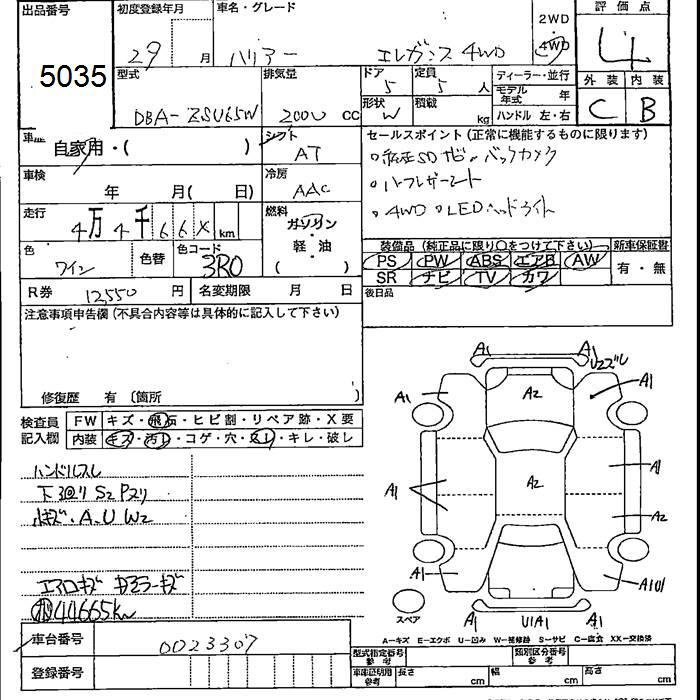 出品番号
5035
初度登録年月
29 月
車名・グレード
ハリアー エレガンス 4WD
2WD
4WD
評価点
4
外装 内装
C B
型式
DBA-ZSU65W
排気量
2000 cc
ドア
5
定員
5 人
形状
W
積載
kg
ディーラー・並行
モデル年式 年
ハンドル 左・右
車歴
自家用・( )
シフト
AT
車検
年 月( 日)
冷房
AAC
走行
4万4千66X km
燃料
ガソリン
・
軽・油
( )
色
ワイン
色替
色コード
3R0
R券 12,550 円
名変期限 月 日
セールスポイント(正常に機能するものに限ります)
○純正SDナビ バックカメラ
○ハーフレザーシート
○4WD ○LEDヘッドライト
装備品(純正品に限り○をつけて下さい)
PS PW ABS エアB AW
SR ナビ TV カワ
新車保証書
有・無
後日品
注意事項申告欄(不具合内容等は具体的に記入して下さい)
修復歴 有〔箇所 〕
検査員記入欄
FW キズ・飛石・ヒビ割・リペア跡・X要
内装 キズ・汚レ・コゲ・穴・スレ・キレ・破レ
ハンドルスレ
下廻り S2 Pスリ
小キズ・A.U W2
エアロキズ
44665km
A1 A1
A1
A1
A2
A2
A1
A1
A2
A1
A101
A1 U1A1 A1
スペア
A-キズ E-エクボ U-凹み W-補修跡 S-サビ C-腐食 XX-交換済
車台番号 0023307
登録番号
型式指定番号 参考
類別区分番号 参考
車庫証明用 参考
長さ cm
幅 cm
高さ cm